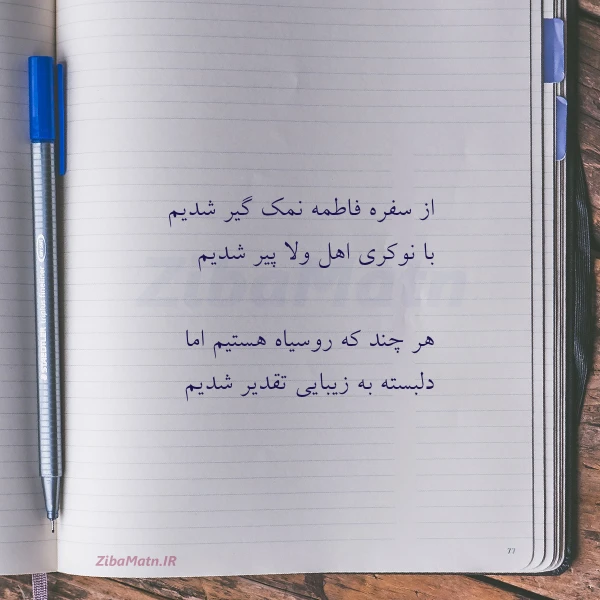 از سفره فاطمه نمک گیر شدیم
با نوکری اهل ولا پیر شدیم
هر چند که روسیاه هستیم اما
دلبسته به زیبایی تقدیر شدیم
ZibaMatn
77
ZibaMatn.IR